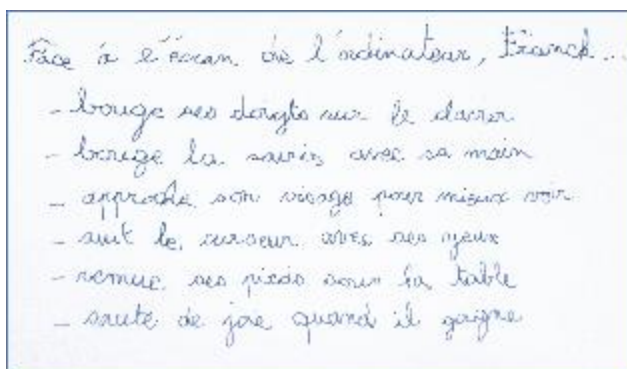 Face à l'écran de l'ordinateur, Franck...
- bouge ses doigts sur le clavier
- bouge la souris avec sa main
- approche son visage pour mieux voir
- suit le curseur avec ses yeux
- remue ses pieds sous la table
- saute de joie quand il gagne